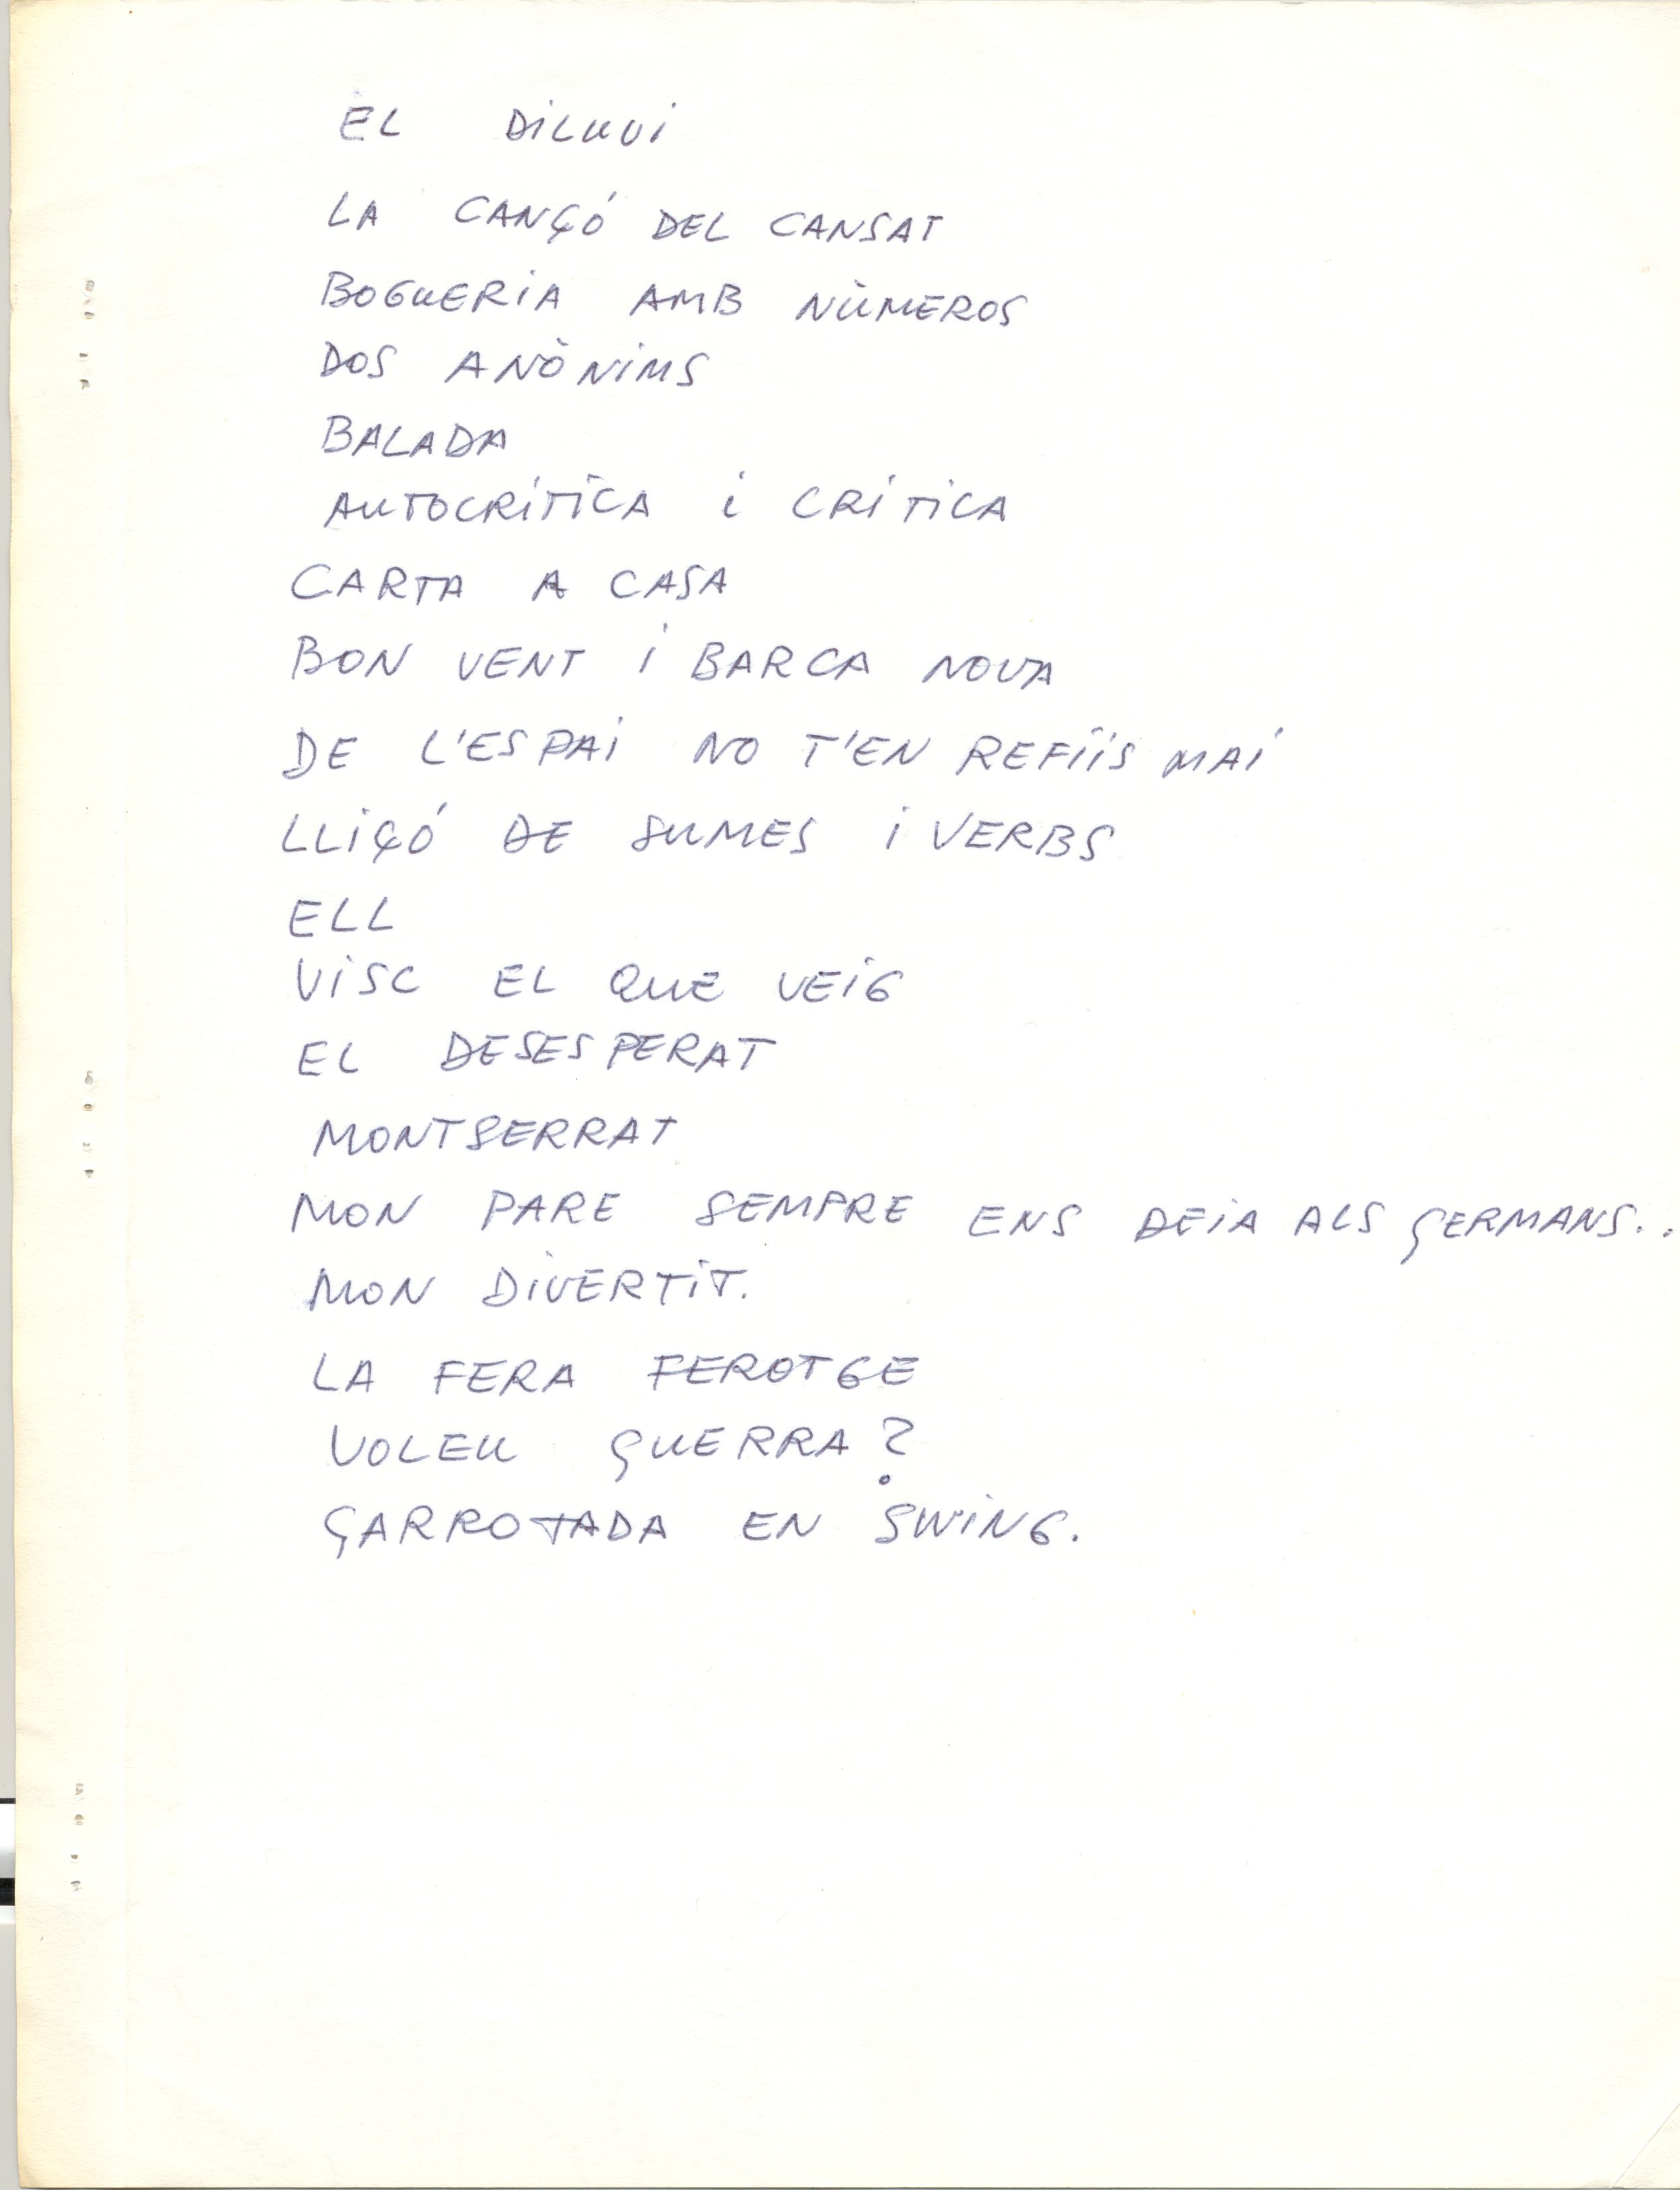 EL DiLUVi
LA CANÇÓ DEL CANSAT
BOGUERiA AMB NÙMEROS
DOS ANÒNiMS
BALADA
AUTOCRÍTiCA i CRÍTiCA
CARTA A CASA
BON VENT i BARCA NOVA
DE L'ESPAi NO T'EN REFiïS MAi
LLiÇÓ DE SUMES i VERBS
ELL
ViSC EL QUE VEiG
EL DESESPERAT
MONTSERRAT
MON PARE SEMPRE ENS DEiA ALS GERMANS..
MON DiVERTiT.
LA FERA FEROTGE
VOLEU GUERRA?
GARROTADA EN SWiNG.